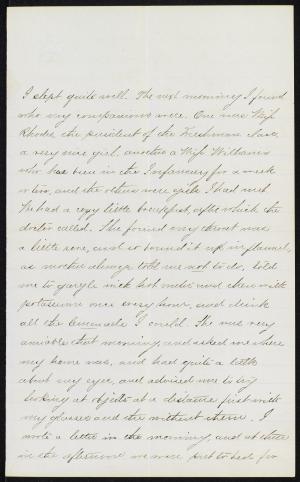 I slept quite well. The next morning I found
who my companions were. One was Miss
Rhodes the president of the Freshman class,
a very nice girl, another a Miss Williams
who has been in the Infirmary for a week
or two, and the others were girls I had met.
We had a cozy little breakfast, after which the
doctor called. She found my throat was
a little sore, and so bound it up in flannel,
as mother always told me not to do, told
me to gargle with hot water and then with
potassium once every hour, and drink
all the lemonade I could. She was very
amiable that morning, and asked me where
my home was, and had quite a little
about my eyes, and advised me to try
looking at objects at a distance first with
my glasses and then without them. I
wrote a letter in the morning, and at three
in the afternoon we were put to beds for